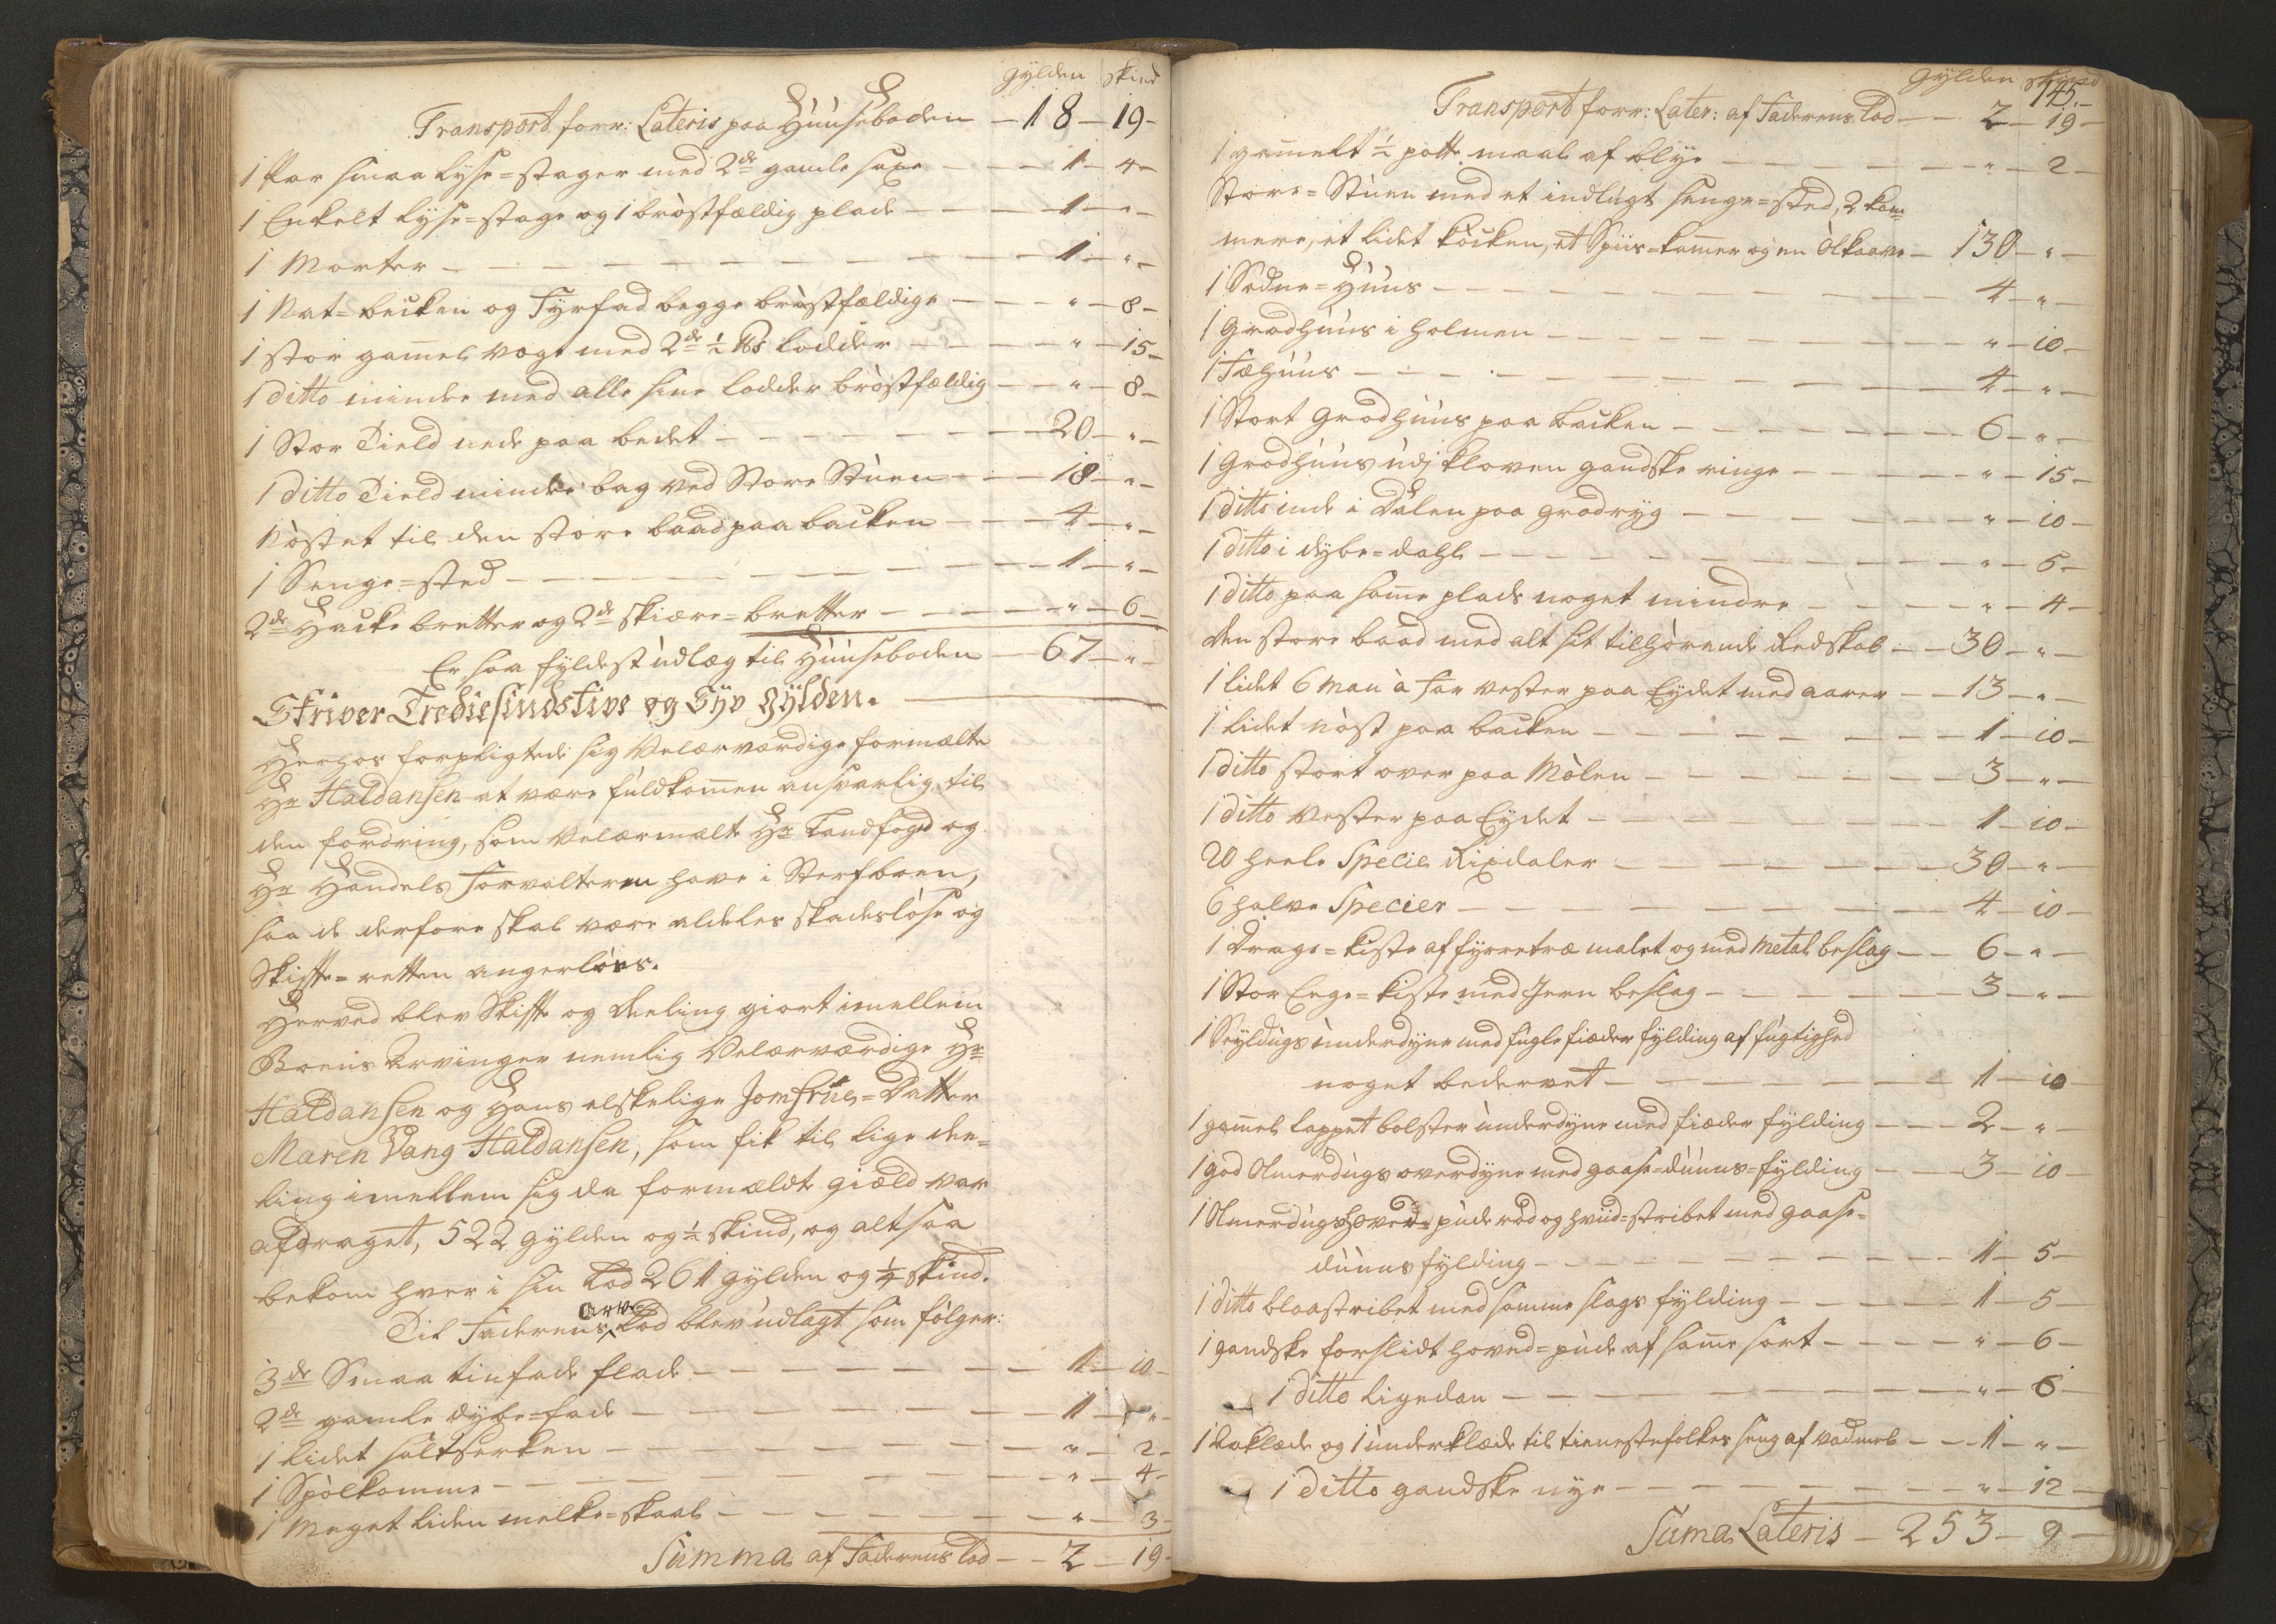 Gylden Skind
Transport forr: Lateris paa Huuseboden — 18 — 19 —
1 Par smaa lyse=stager med 2de gamle saxe — 1 — 4 —
1 Enkelt lyse=stage og 1 bröstfældig plade — 1 — " —
1 Morter — 1 — " —
1 Nat=becken og Fyrfad begge bröstfældige — " — 8 —
1 stor gam̄el vegt med 2de ½ lodder — " — 15 —
1 ditto mindre med alle sine lodder bröstfældig — " — 8 —
1 Stor Tield nede paa bedet — 20 — " —
1 ditto Tield mindre bag ved Store Stuen — 18 — " —
Nöstet til den store baad paa backen — 4 — " —
1 Senge=sted — 1 — " —
2de Hacke bretter og 2de skiære=bretter — " — 6 —
Er saa fyldest udlæg til Huuseboden — 67 — " —
Skriver Trediesindstive og Syv Gylden.
Herhos forpligtede sig Velærværdige formælte
Hr Haldansen at være fuldkom̄en ansvarlig til
den fordring, som Velærmælte Hr Landfoged og
Hr Handels Forvalteren have i Sterfboen,
saa de derfore skal være aldeles skadeslöse og
Skifte=retten angerlöes.
Herved blev Skifte og deeling giort imellem
Boens Arvinger nemlig Velærværdige Hr
Haldansen og Hans elskelige Jomfrue=Datter
Maren Vang Haldansen, som fik til lige dee=
ling imellem sig da formældte giæld var
afdraget, 522 gylden og ½ skind, og altsaa
bekom hver i sin Lod 261 gylden og ¼ skind.
Til Faderens Arve Lod blev udlagt som fölger:
3de Smaa tinfade flade — 1 — 10 —
2de gamle dybe=fade — 1 — " —
1 lidet saltserken — " — 2 —
1 Spölkomme — " — 4 —
1 Meget liden melke=skaal — " — 3 —
Summa af Faderens Lod — 2 — 19 —
Gylden Skind
145.
Transport forr: Later: af Faderens Lod — 2 — 19 —
1 gam̄elt ½ potte maal af blye — " — 2 —
Store=Stuen med et indlugt senge=sted, 2 kam=
mere, et lidet köcken, et Spiis=kam̄er og en Ölkaave — 130 — " —
1 Sodne=Huus — 4 — " —
1 Grodhuus i Holmen — " — 10 —
1 Fæhuus — 4 — " —
1 Stort Grodhuus paa backen — 6 — " —
1 Grodhuus udj kloven gandske ringe — " — 15 —
1 ditto inde i Dalen paa grodryg — " — 10 —
1 ditto i dybe=dahl — " — 5 —
1 ditto paa sam̄e plads noget mindre — " — 4 —
Den store baad med alt sit tilhörende Redskab — 30 — " —
1 lidet 6 man a far vester paa Eydet med aarer — 13 — " —
1 lidet nöst paa backen — 1 — 10 —
1 ditto stort over paa Mölen — 3 — " —
1 ditto Vester paa Eydet — 1 — 10 —
20 heele Specie Rixdaler — 30 — " —
6 halve Specier — 4 — 10 —
1 Drage=kiste af fyrretræ malet og med Metal beslag — 6 — " —
1 Stor Eege=kiste med Jern beslag — 3 — " —
1 Seyldugs underdyne med fuglefiæder fylding af fugtighed
noget bedervet — 1 — 10
1 gam̄el lappet bolster underdyne med fiæder fylding — 2 — " —
1 god Olmerdugs overdyne med gaase=duuns=fylding — 3 — 10 —
1 Olmerdugs hoved=pude röd og hviid=stribet med gaase=
duuns fylding — 1 — 5 —
1 ditto blaastribet med samme slags fylding — 1 — 5 —
1 gandske forslidt hoved=pude af sam̄e sort — " — 6 —
1 ditto ligedan — " — 6 —
1 Raklæde og 1 underklæde til tienestefolkes seng af vadmel — 1 — " —
1 ditto gandske nye — " — 12 —
Sum̄a Lateris — 253 — 9 —